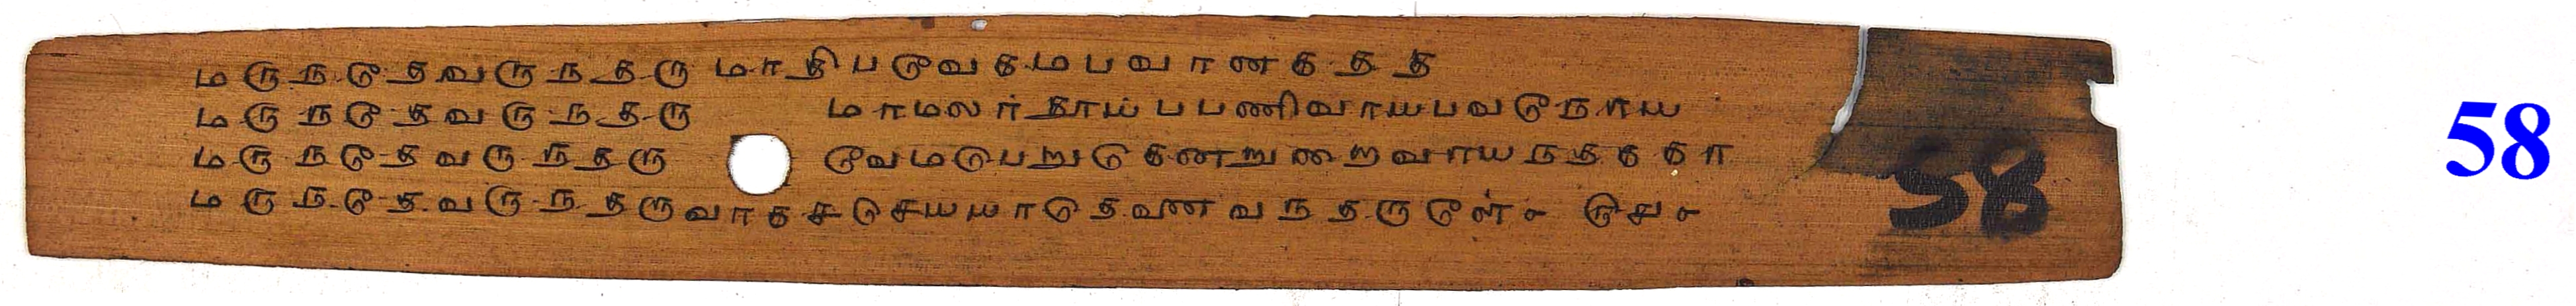 மருநதேவருநதரு மாதிபவேகமபவாணகதத
மருநதேவருநதரு மாமலர்தாய்பபணிவாயபவநோய
மருநதேவருநதரு வேமபெறுகெணறுறைறவாயநதககா
மருநதேவருநதருவாகசசெயயாதெவணவநதருளே்
58
58